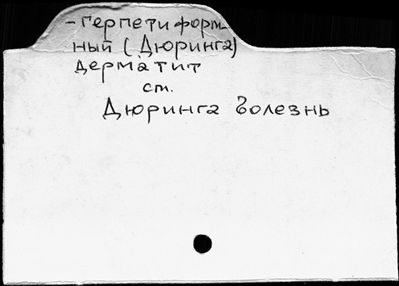 - герпетиформ-
ный (Дюринга)
дерматит
см.
Дюринга болезнь